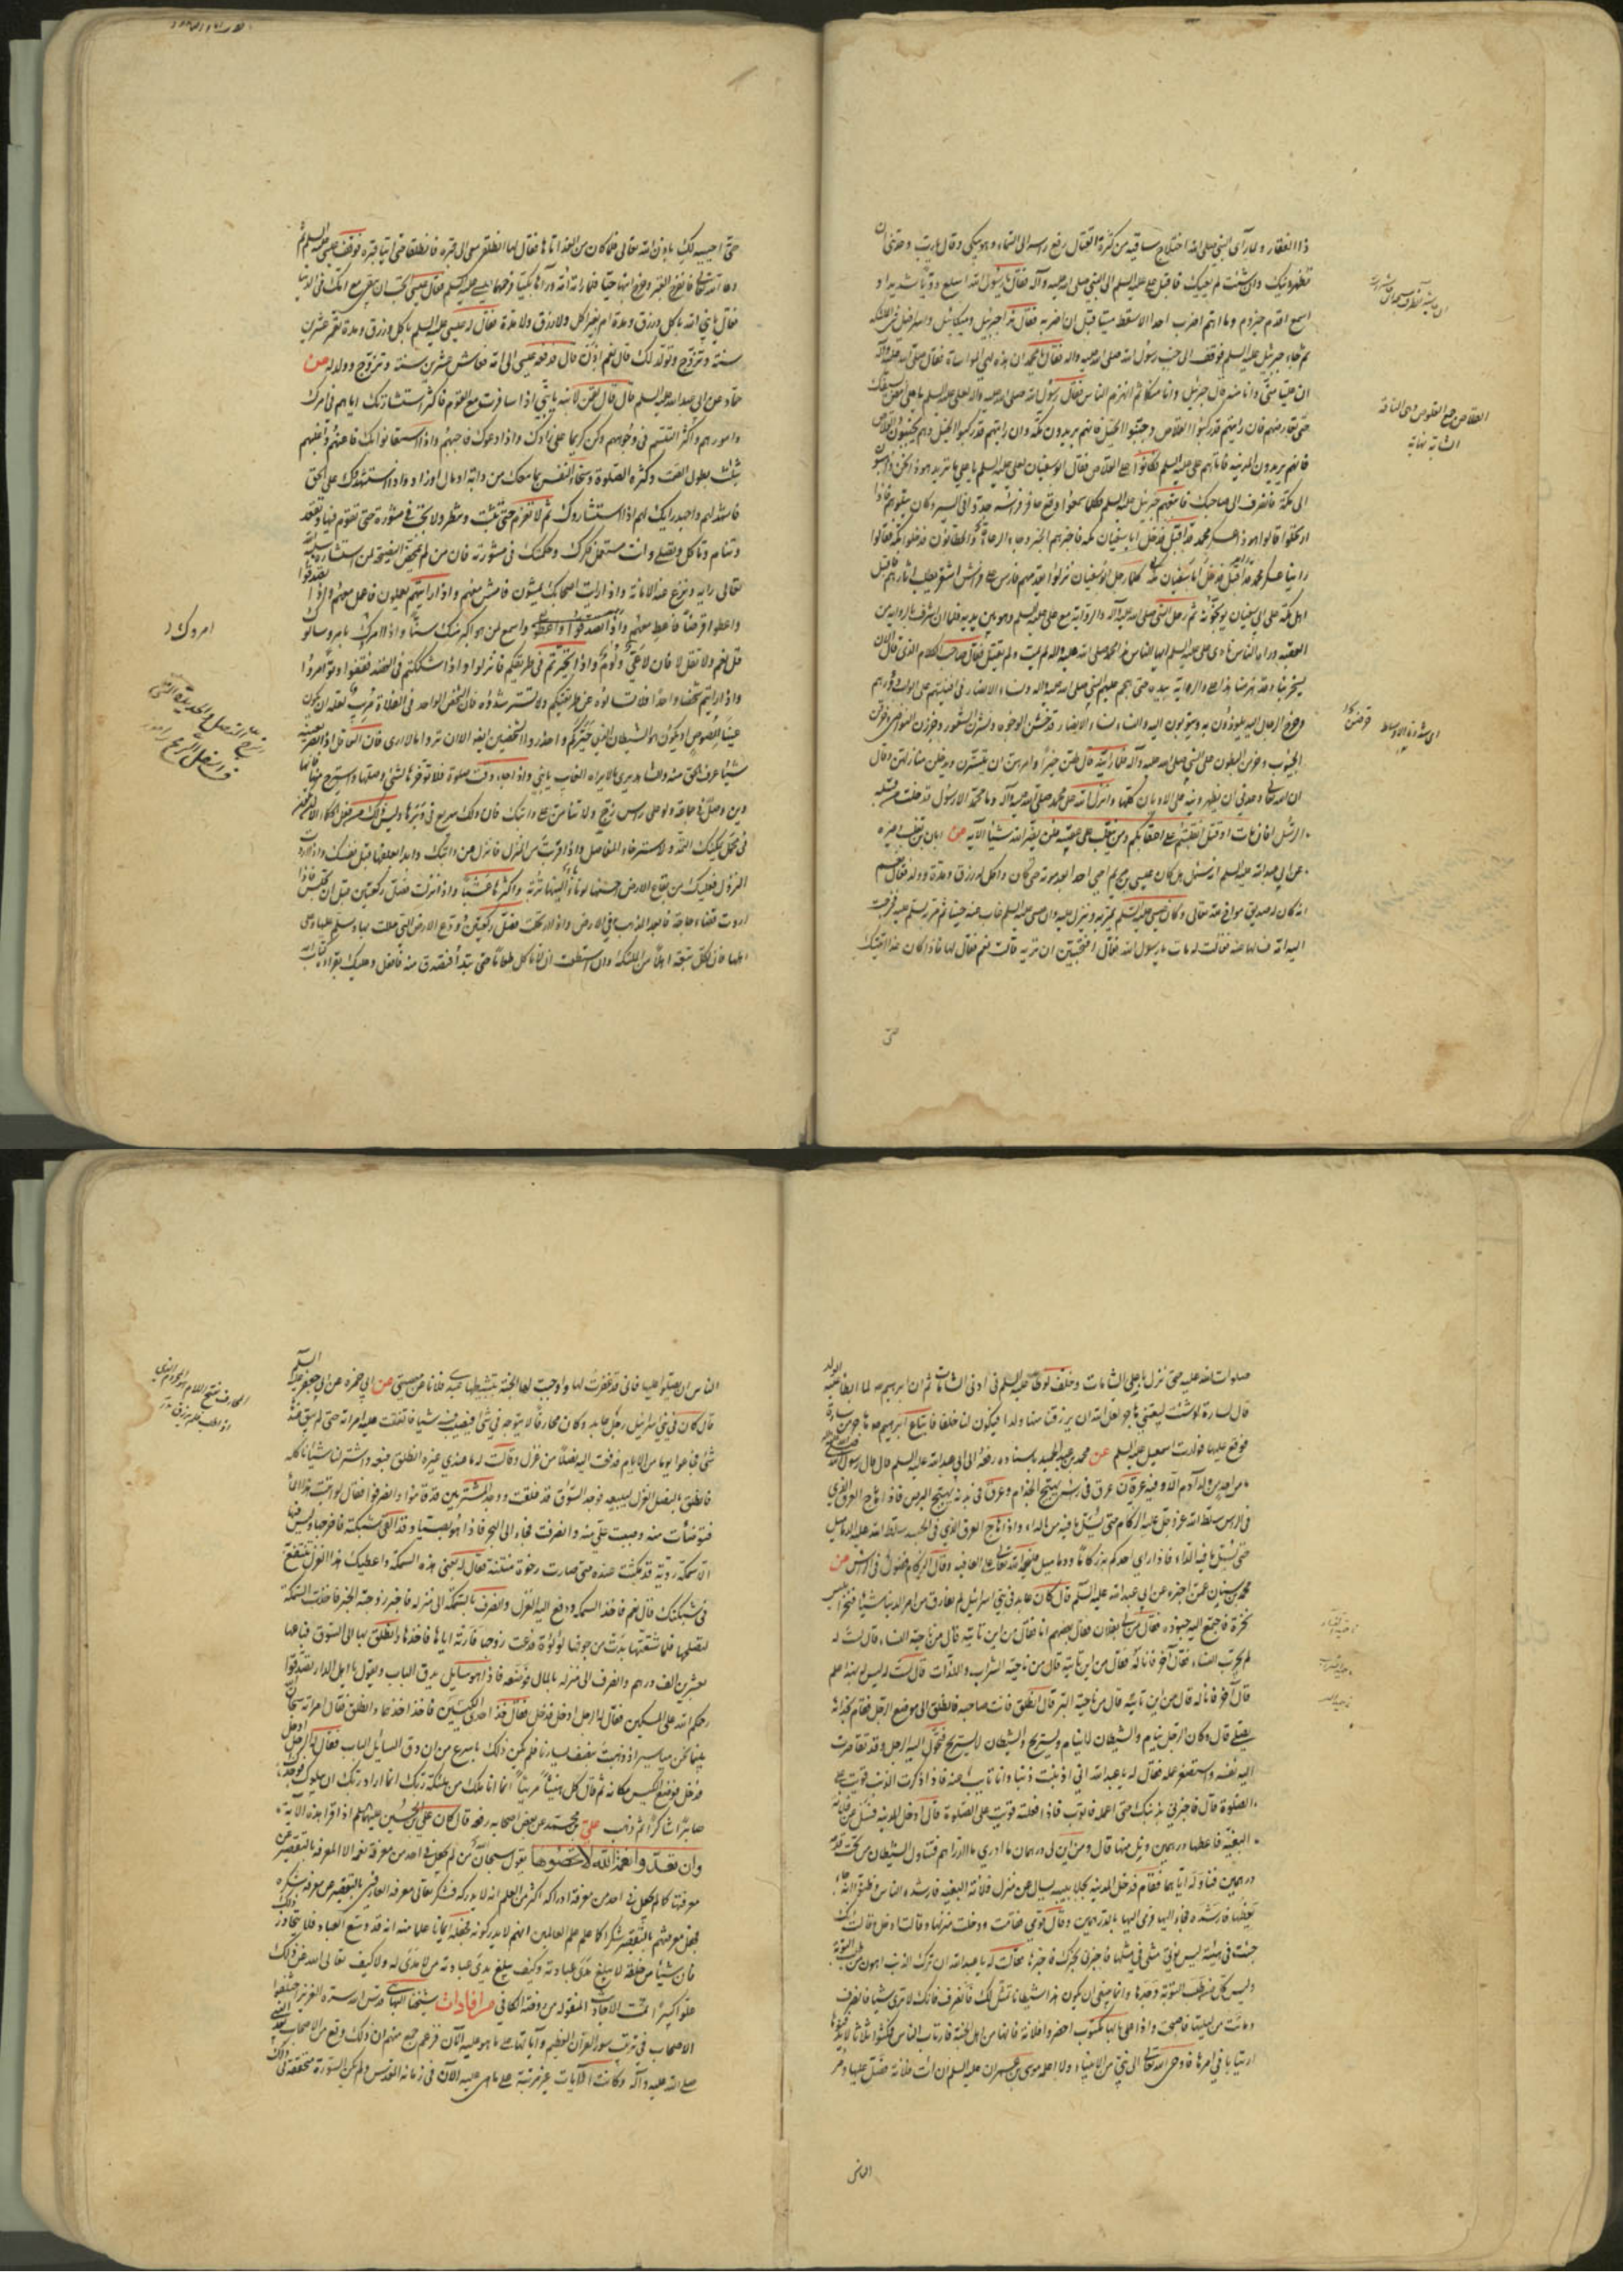 ذا الفقار ولما رأى النبي صلى الله اختلاج ساقيه من كثرة القتال رفع راسه الى السماء وهو يبكي وقال يا رب وعدتني ان
تظهر دينك وان شئت لم يعيك فاقبل علي عليه السلم الى النبي صلى الله عليه وآله فقال يا رسول الله اسمع دويا شديدا و
اسمع اقدم حيزوم وما اهم اضرب احدا الا سقط ميتا قبل ان اضربه فقال هذا جبرئيل وميكائيل واسرافيل في الملئكة
ثم جاء جبرئيل عليه السلم فوقف الى جنب رسول الله صلى الله عليه واله فقال يا محمد ان هذه لهي المواساة فقال صلى الله عليه وآله
ان عليا مني وانا منه قال جبرئيل وانا منكما ثم انهزم الناس فقال رسول الله صلى الله عليه واله لعلي عليه السلم يا علي امض بسيفك
حتى تعارضهم فان رايتهم قد ركبوا القلاص وجنبوا الخيل فانهم يريدون مكة وان رايتهم قد ركبوا الخيل وهم يجنبون القلاص
فانهم يريدون المدينه فاتاهم علي عليه السلم فكانوا على القلاص فقال ابوسفيان لعلي عليه السلم يا علي ما تريد هوذا نحن ذاهبون
الى مكة فانصرف الى صاحبك فاتبعهم جبرئيل عليه السلم فكلما سمعوا وقع حافر فرسه جدوا في السير وكان يتلوهم فاذا
ارتحلوا قالوا هوذا عسكر محمد قد اقبل فدخل ابا سفيان مكة فاخبرهم الخبر وجاء الرعاة والحطابون فدخلوا مكة فقالوا
راينا عسكر محمد كلما رحل ابوسفيان نزلوا يقدمهم فارس على فرس اشقر يطلب اثارهم فاقبل
اهل مكة على ابي سفيان يوبخونه ثم رحل النبي صلى الله عليه وآله والراية مع علي عليه السلم وهو بين يديه فلما ان اشرف بالراية من
العقبه وراه الناس نادى علي عليه السلم ايها الناس هذا محمد صلى الله عليه واله لم يمت ولم يقتل فقال صاحب الكلام الذي قال الان
يسخر بنا وقد هزمنا هذا علي والراية بيده حتى هجم عليهم النبي صلى الله عليه واله ونساء الانصار في افنيتهم على ابواب دورهم
وخرج الرجال اليه يلوذون به ويتوبون اليه والنساء نساء الانصار قد خدشن الوجوه ونشرن الشعور وجززن النواصي وخرقن
الجيوب وحزمن البطون على النبي صلى الله عليه وآله فلما راينه قال لهن خيرا وامرهن ان يتسترن ويدخلن منازلهن وقال
ان الله تعالى وعدني ان يظهر دينه على الاديان كلها وانزل الله على محمد صلى الله عليه وآله وما محمد الا رسول قد خلت من قبله
الرسل افان مات او قتل انقلبتم على اعقابكم ومن ينقلب على عقبيه فلن يضر الله شيئا الآيه عن ابان بن تغلب وغيره
عن ابي عبد الله عليه السلم انه سئل هل كان عيسى بن مريم احيى احدا بعد موته حتى كان له اكل ورزق ومدة وولد فقال نعم
انه كان له صديق مواخ له في الله تعالى وكان عيسى عليه السلم يمر به وينزل عليه وان عيسى عليه السلم غاب عنه حينا ثم مر به ليسلم عليه فخرجت
اليه امه فسالها عنه فقالت له مات يا رسول الله فقال افتحبين ان تريه قالت نعم فقال لها فاذا كان غدا اتيتك
حتى
القلاص جمع القلوص وهي الناقة
الشابة نهاية
حتى احييه لك باذن الله تعالى فلما كان من الغد اتاها فقال لها انطلقي معي الى قبره فانطلقا حتى اتيا قبره فوقف عيسى عليه السلم ثم
دعا الله تعالى فانفرج القبر وخرج ابنها حيا فلما راته امه ورآها بكيا فرحمهما عيسى عليه السلم فقال عيسى اتحب ان تبقى مع امك في الدنيا
فقال يا نبي الله باكل ورزق ومدة ام بغير اكل ولا رزق ولا مدة فقال له عيسى عليه السلم باكل ورزق ومدة تعمر عشرين
سنة وتزوج ويولد لك قال نعم اذن قال فدفعه عيسى الى امه فعاش عشرين سنة وتزوج وولد له عن
حماد عن ابي عبد الله عليه السلم قال قال لقمن لابنه يا بني اذا سافرت مع القوم فاكثر استشارتك اياهم في امرك
وامورهم واكثر التبسم في وجوههم وكن كريما على زادك واذا دعوك فاجبهم واذا استعانوا بك فاعنهم واغلبهم
بثلث بطول الصمت وكثرة الصلوة وسخاء النفس بما معك من دابة او مال او زاد واذا استشهدوك على الحق
فاشهد لهم واجهد رايك لهم اذا استشاروك ثم لا تعزم حتى تثبت وتنظر ولا تجب في مشورة حتى تقوم فيها وتقعد
وتنام وتاكل وتصلي وانت مستعمل فكرك وحكمتك في مشورته فان من لم يمحض النصيحة لمن استشاره سلبه الله
تعالى رايه ونزع عنه الامانة واذا رايت اصحابك يمشون فامش معهم واذا رايتهم يعملون فاعمل معهم واذا تصدقوا
واعطوا قرضا فاعط معهم واسمع لمن هو اكبر منك سنا واذا امروك بامر وسالوك
فقل نعم ولا تقل لا فان لا عي ولوم واذا تحيرتم في طريقكم فانزلوا واذا شككتم في القصد فقفوا وتوامروا
واذا رايتم شخصا واحدا فلا تسالوه عن طريقكم ولا تسترشدوه فان الشخص الواحد في الفلاة مريب لعله ان يكون
عينا للصوص او يكون هو الشيطان الذي حيركم واحذروا الشخصين ايضا الا ان تروا ما لا ارى فان العاقل اذا ابصر بعينه
شيئا عرف الحق منه والشاهد يرى ما لا يراه الغايب يا بني واذا جاء وقت صلوة فلا تؤخرها لشئ وصلها واسترح منها فانها
دين وصل في جماعة ولو على راس زج ولا تنامن على دابتك فان ذلك سريع في دبرها وليس ذلك من فعل الحكماء الا ان تكون
في محمل يمكنك التمدد لاسترخاء المفاصل واذا قربت من المنزل فانزل عن دابتك وابدا بعلفها قبل نفسك واذا اردت
النزول فعليك من بقاع الارض باحسنها لونا والينها تربة واكثرها عشبا واذا نزلت فصل ركعتين قبل ان تجلس واذا
اردت قضاء حاجة فابعد المذهب في الارض واذا ارتحلت فصل ركعتين وودع الارض التي حللت بها وسلم عليها وعلى
اهلها فان لكل بقعة اهلا من الملئكة وان استطعت ان لا تاكل طعاما حتى تبدأ فتصدق منه فافعل وعليك بقراءة كتاب الله
امروك
صلوات الله عليه حتى نزل باعلى الشامات وخلف لوطا عليه السلم في ادنى الشامات ثم ان ابراهيم لما ابطا عليه الولد
قال لسارة لو شئت لبعتيني هاجر لعل الله ان يرزقنا منها ولدا فيكون لنا خلفا فابتاع ابراهيم هاجر من سارة
فوقع عليها فولدت اسمعيل عليه السلم عن محمد بن عبد الحميد باسناده رفعه الى ابي عبد الله عليه السلم قال قال رسول الله صلى الله عليه وآله
ما من احد من ولد آدم الا وفيه عرقان عرق في راسه يهيج الجذام وعرق في بدنه يهيج البرص فاذا هاج العرق الذي
في الراس سلط الله عز وجل عليه الزكام حتى يسيل ما فيه من الداء واذا هاج العرق الذي في الجسد سلط الله عليه الدماميل
حتى يسيل ما فيه الداء فاذا راى احدكم به زكاما ودماميل فليحمد الله تعالى على العافيه وقال الزكام فضول في الراس عن
محمد بن سنان عمن اخبره عن ابي عبد الله عليه السلم قال كان عابد في بني اسرائيل لم يقارف من امر الدنيا شيئا فنخر ابليس
نخرة فاجتمع اليه جنوده فقال من لي بفلان فقال بعضهم انا فقال من اين تاتيه قال من ناحية النساء قال لست له
لم يجرب النساء فقال آخر فانا له فقال من اين تاتيه قال من ناحية الشراب واللذات قال لست له ليس بهذا علم
قال آخر فانا له قال من اين تاتيه قال من ناحية البر قال انطلق فانت صاحبه فانطلق الى موضع الرجل فقام بحذائه
يصلي قال وكان الرجل ينام والشيطان لا ينام ويستريح والشيطان لا يستريح فتحول اليه الرجل وقد تقاصرت
اليه نفسه واستصغر عمله فقال له يا عبد الله اني اذنبت ذنبا وانا تائب منه فاذا ذكرت الذنب قويت على
الصلوة قال فاخبرني بذنبك حتى اعمله فاتوب فاذا فعلته قويت على الصلوة قال ادخل المدينه فسل عن فلانة
البغية فاعطها درهمين ونل منها قال ومن اين لي درهمان ما ادري ما الدراهم فتناول الشيطان من تحت قدمه
درهمين فناوله اياهما فقام فدخل المدينه بجلابيبه يسال عن منزل فلانة البغية فارشده الناس وظنوا انه جاء
يعظها فارشدوه فجاء اليها فرمى اليها بالدرهمين وقال قومي فقامت ودخلت منزلها وقالت ادخل وقالت انك
جئتني في هيئة ليس يؤتى مثلي في مثلها فاخبرني بخبرك فاخبرها فقالت له يا عبد الله ان ترك الذنب اهون من طلب التوبة
وليس كل من طلب التوبة وجدها وانما ينبغي ان يكون هذا شيطانا تمثل لك فانصرف فانك لا ترى شيئا فانصرف
وماتت من ليلتها فاصبحت واذا على بابها مكتوب احضروا فلانة فانها من اهل الجنة فارتاب الناس فمكثوا ثلاثا لا يدفنونها
ارتيابا في امرها فاوحى الله تعالى الى نبي من الانبياء ولا اعلمه الا موسى بن عمران عليه السلم ان ائت فلانة فصل عليها ومر
الناس
الناس ان يصلوا عليها فاني قد غفرت لها واوجبت لها الجنة بتثبيطها عبدي فلانا عن معصيتي عن ابي حمزه عن ابي جعفر عليه السلم
قال كان في بني اسرائيل رجل عابد وكان محارفا لا يتوجه في شئ فيصيب فيه شيئا فانفقت عليه امراته حتى لم يبق عندها
شئ فجاعوا يوما من الايام فدفعت اليه نصلا من غزل وقالت له ما عندي غيره انطلق فبعه واشتر لنا شيئا ناكله
فانطلق بالنصل الغزل ليبيعه فوجد السوق قد غلقت ووجد المشترين قد قاموا وانصرفوا فقال لو اتيت هذا الماء
فتوضأت منه وصببت علي منه وانصرفت فجاء الى البحر فاذا هو بصياد قد القى شبكته فاخرجها وليس فيها
الا سمكة ردية قد مكثت عنده حتى صارت رخوة منتنة فقال له بعني هذه السمكة واعطيك هذا الغزل تنتفع به
في شبكتك قال نعم فاخذ السمكه ودفع اليه الغزل وانصرف بالسمكة الى منزله فاخبر زوجته الخبر فاخذت السمكة
لتصلحها فلما شقتها بدت من جوفها لؤلؤة فدعت زوجها فارته اياها فاخذها وانطلق بها الى السوق فباعها
بعشرين الف درهم وانصرف الى منزله بالمال فوضعه فاذا هو سايل يدق الباب ويقول يا اهل الدار تصدقوا
رحمكم الله على المسكين فقال له الرجل ادخل فدخل فقال خذ احدى الكيسين فاخذ احدهما وانطلق فقال امراته سبحان الله
بينما نحن مياسير اذ ذهبت بنصف يسارنا فلم يكن ذلك باسرع من ان دق السايل الباب فقال له الرجل ادخل
فدخل فوضع الكيس مكانه ثم قال كل هنيئا مريئا انما انا ملك من ملئكة ربك انما اراد ربك ان يبلوك فوجدك
صابرا شاكرا ثم ذهب علي بن محمد عن بعض اصحابه رفعه قال كان علي بن الحسين عليهما السلم اذا قرا هذه الآية
وان تعدوا نعمة الله لا تحصوها يقول سبحان من لم يجعل في احد من معرفة نعمه الا المعرفة بالتقصير عن
معرفتها كما لم يجعل في احد من معرفة ادراكه اكثر من العلم انه لا يدركه فشكر تعالى معرفة العارفين بالتقصير عن معرفة شكره
فجعل معرفتهم بالتقصير شكرا كما علم علم العالمين انهم لا يدركونه فجعله ايمانا علما منه انه قد وسع العباد فلا يتجاوز ذلك
فان شيئا من خلقه لا يبلغ مدى عبادته وكيف يبلغ مدى عبادته من لا مدى له ولا كيف تعالى الله عن ذلك
علوا كبيرا تمت الاحاديث المنقولة من روضة الكافي من افادات شيخنا البهائي قدس الله سره العزيز
الاصحاب في ترتيب سور القران العظيم وآياتها على ما هو عليه الآن فزعم جمع منهم ان ذلك وقع من الاصحاب بعد النبي
صلى الله عليه وآله وكانت الآيات غير مرتبة على ما هي عليه الآن في زمانه الاقدس ولم يكن السورة متحققة في ذلك